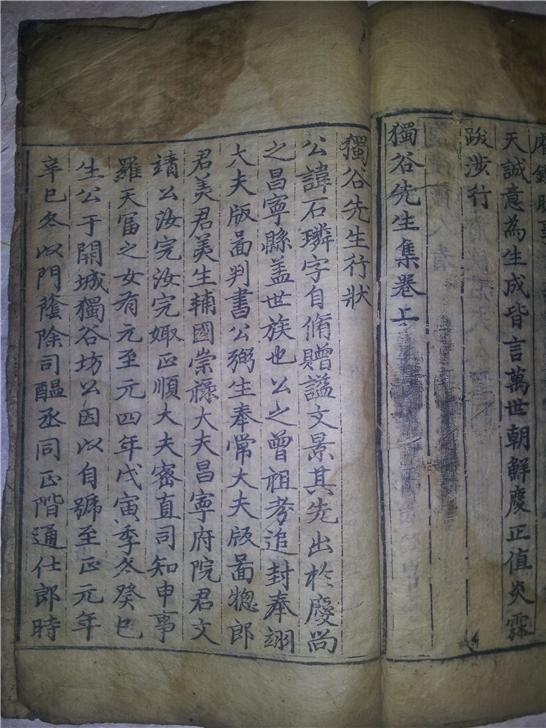 天誠意為生成皆言萬世朝鮮慶正值炎霖
跋涉行
獨谷先生集卷上
獨谷先生行狀
公諱石璘字自脩贈謚文景其先出於慶尚
之昌寧縣盖世族也公之曾祖芳追封奉翊
大夫版啚判書公弼生奉常大夫版啚惣郎
君美君美生輔國崇祿大夫昌寧府院君文
靖公汝完汝完娵正順大夫密直司知申事
羅天冨之女有元至元四年戊寅季冬癸巳
生公于開城獨谷坊公因以自號至正元年
辛巳冬以門蔭除司醞丞同正階通仕郎時